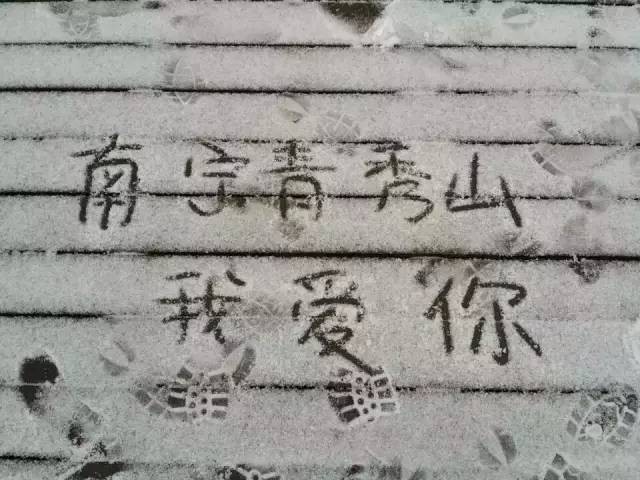 南宁青秀山
我爱你